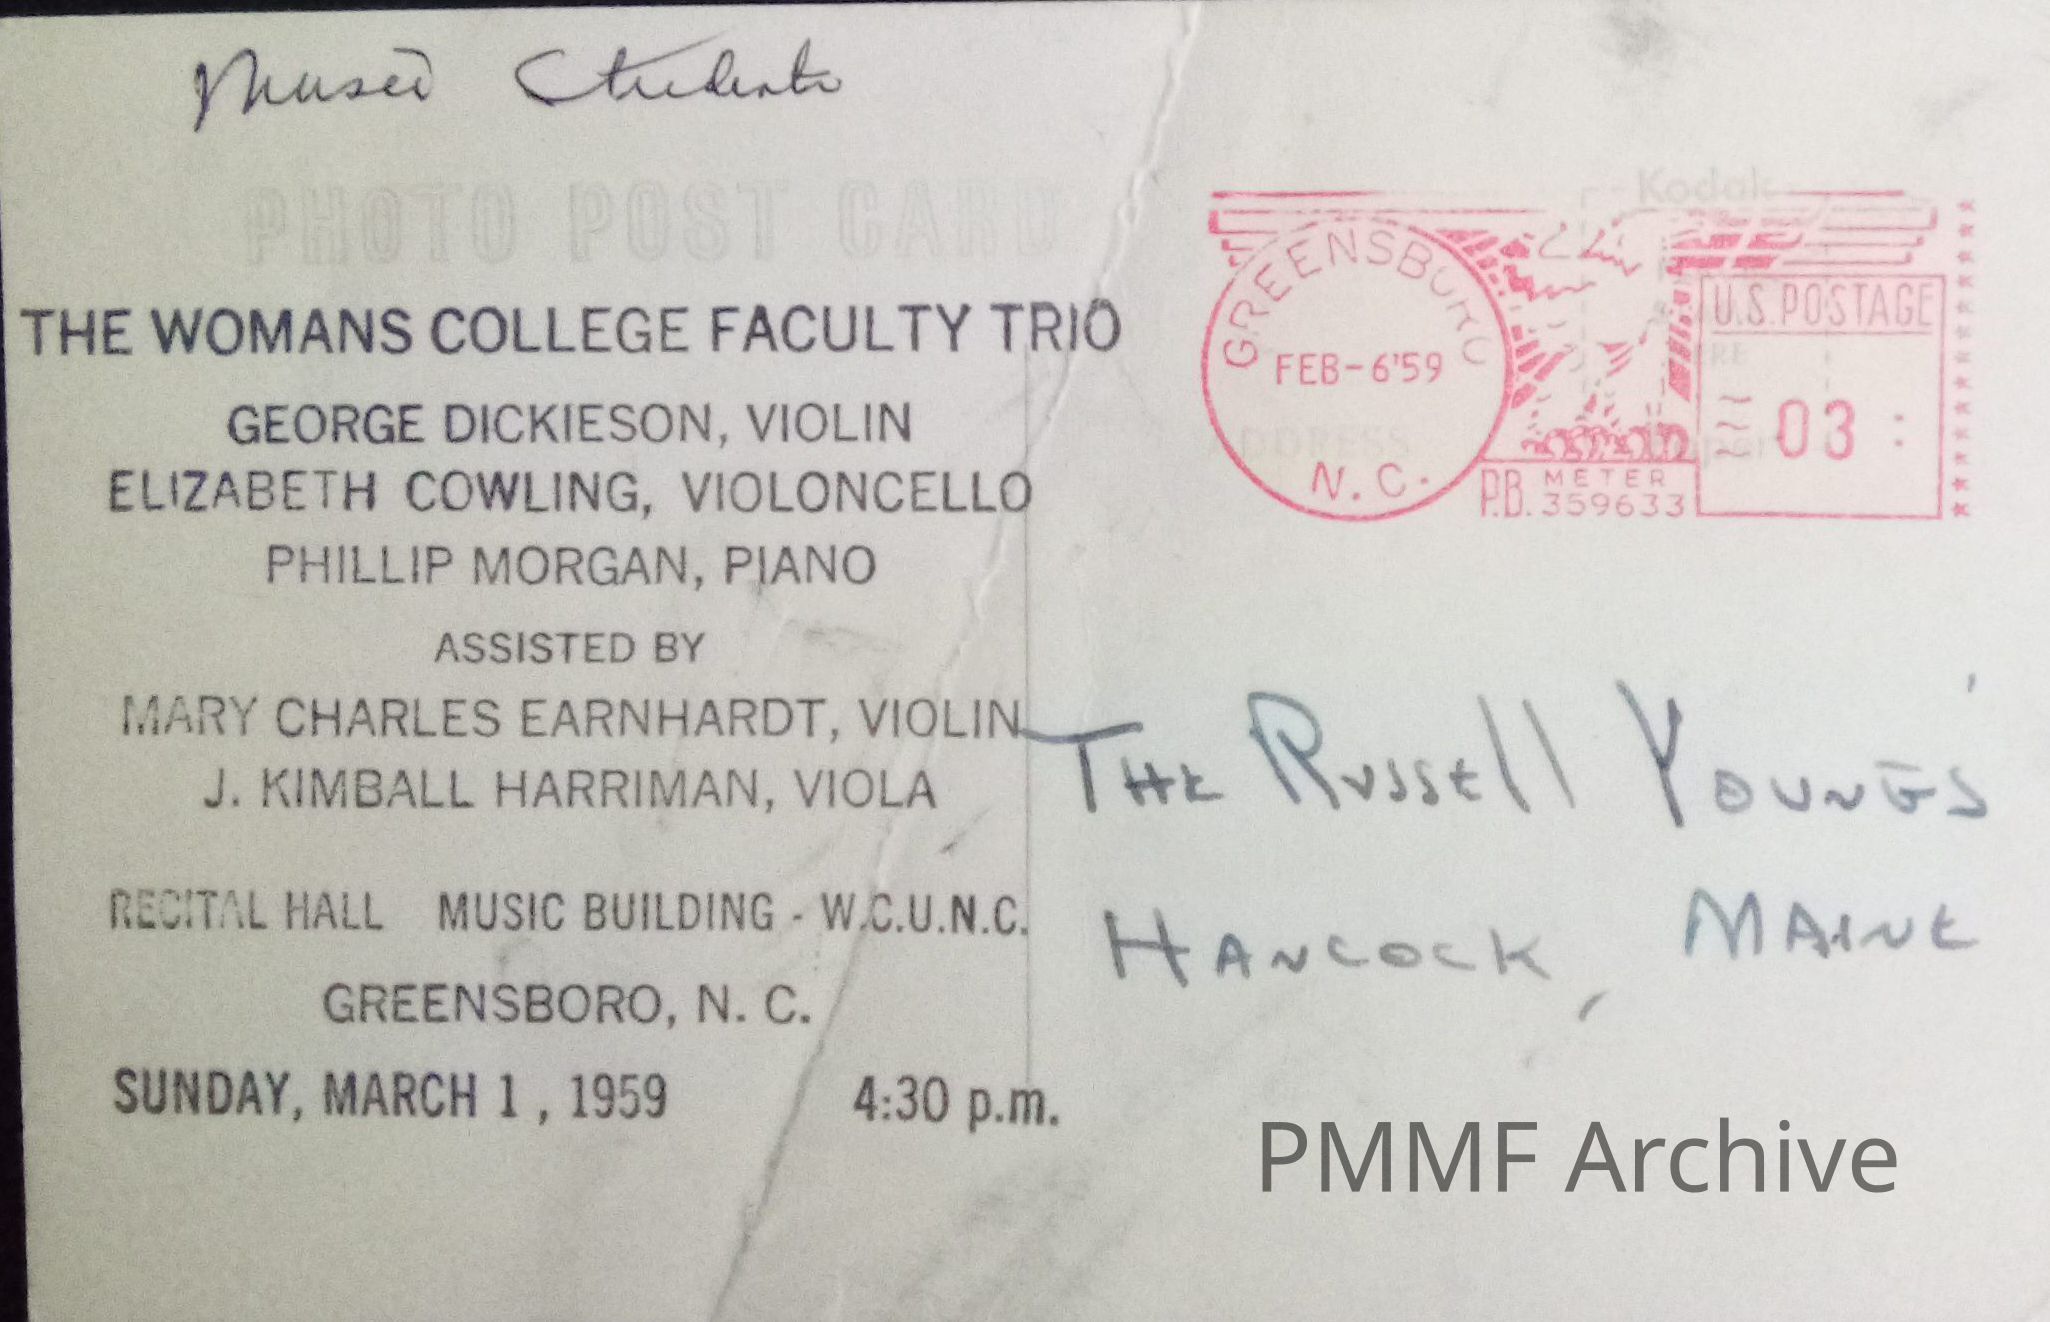 Music Students
PHOTO POST CARD
THE WOMANS COLLEGE FACULTY TRIO
GEORGE DICKIESON, VIOLIN
ELIZABETH COWLING, VIOLONCELLO
PHILLIP MORGAN, PIANO
ASSISTED BY
MARY CHARLES EARNHARDT, VIOLIN
J. KIMBALL HARRIMAN, VIOLA
RECITAL HALL MUSIC BUILDING - W.C.U.N.C.
GREENSBORO, N. C.
SUNDAY, MARCH 1, 1959 4:30 p.m.
Kodak
GREENSBORO
FEB-6'59
N.C.
P.B. METER
359633
U.S. POSTAGE
03
ADDRESS
THE RUSSELL YOUNGS'
HANCOCK, MAINE
PMMF Archive